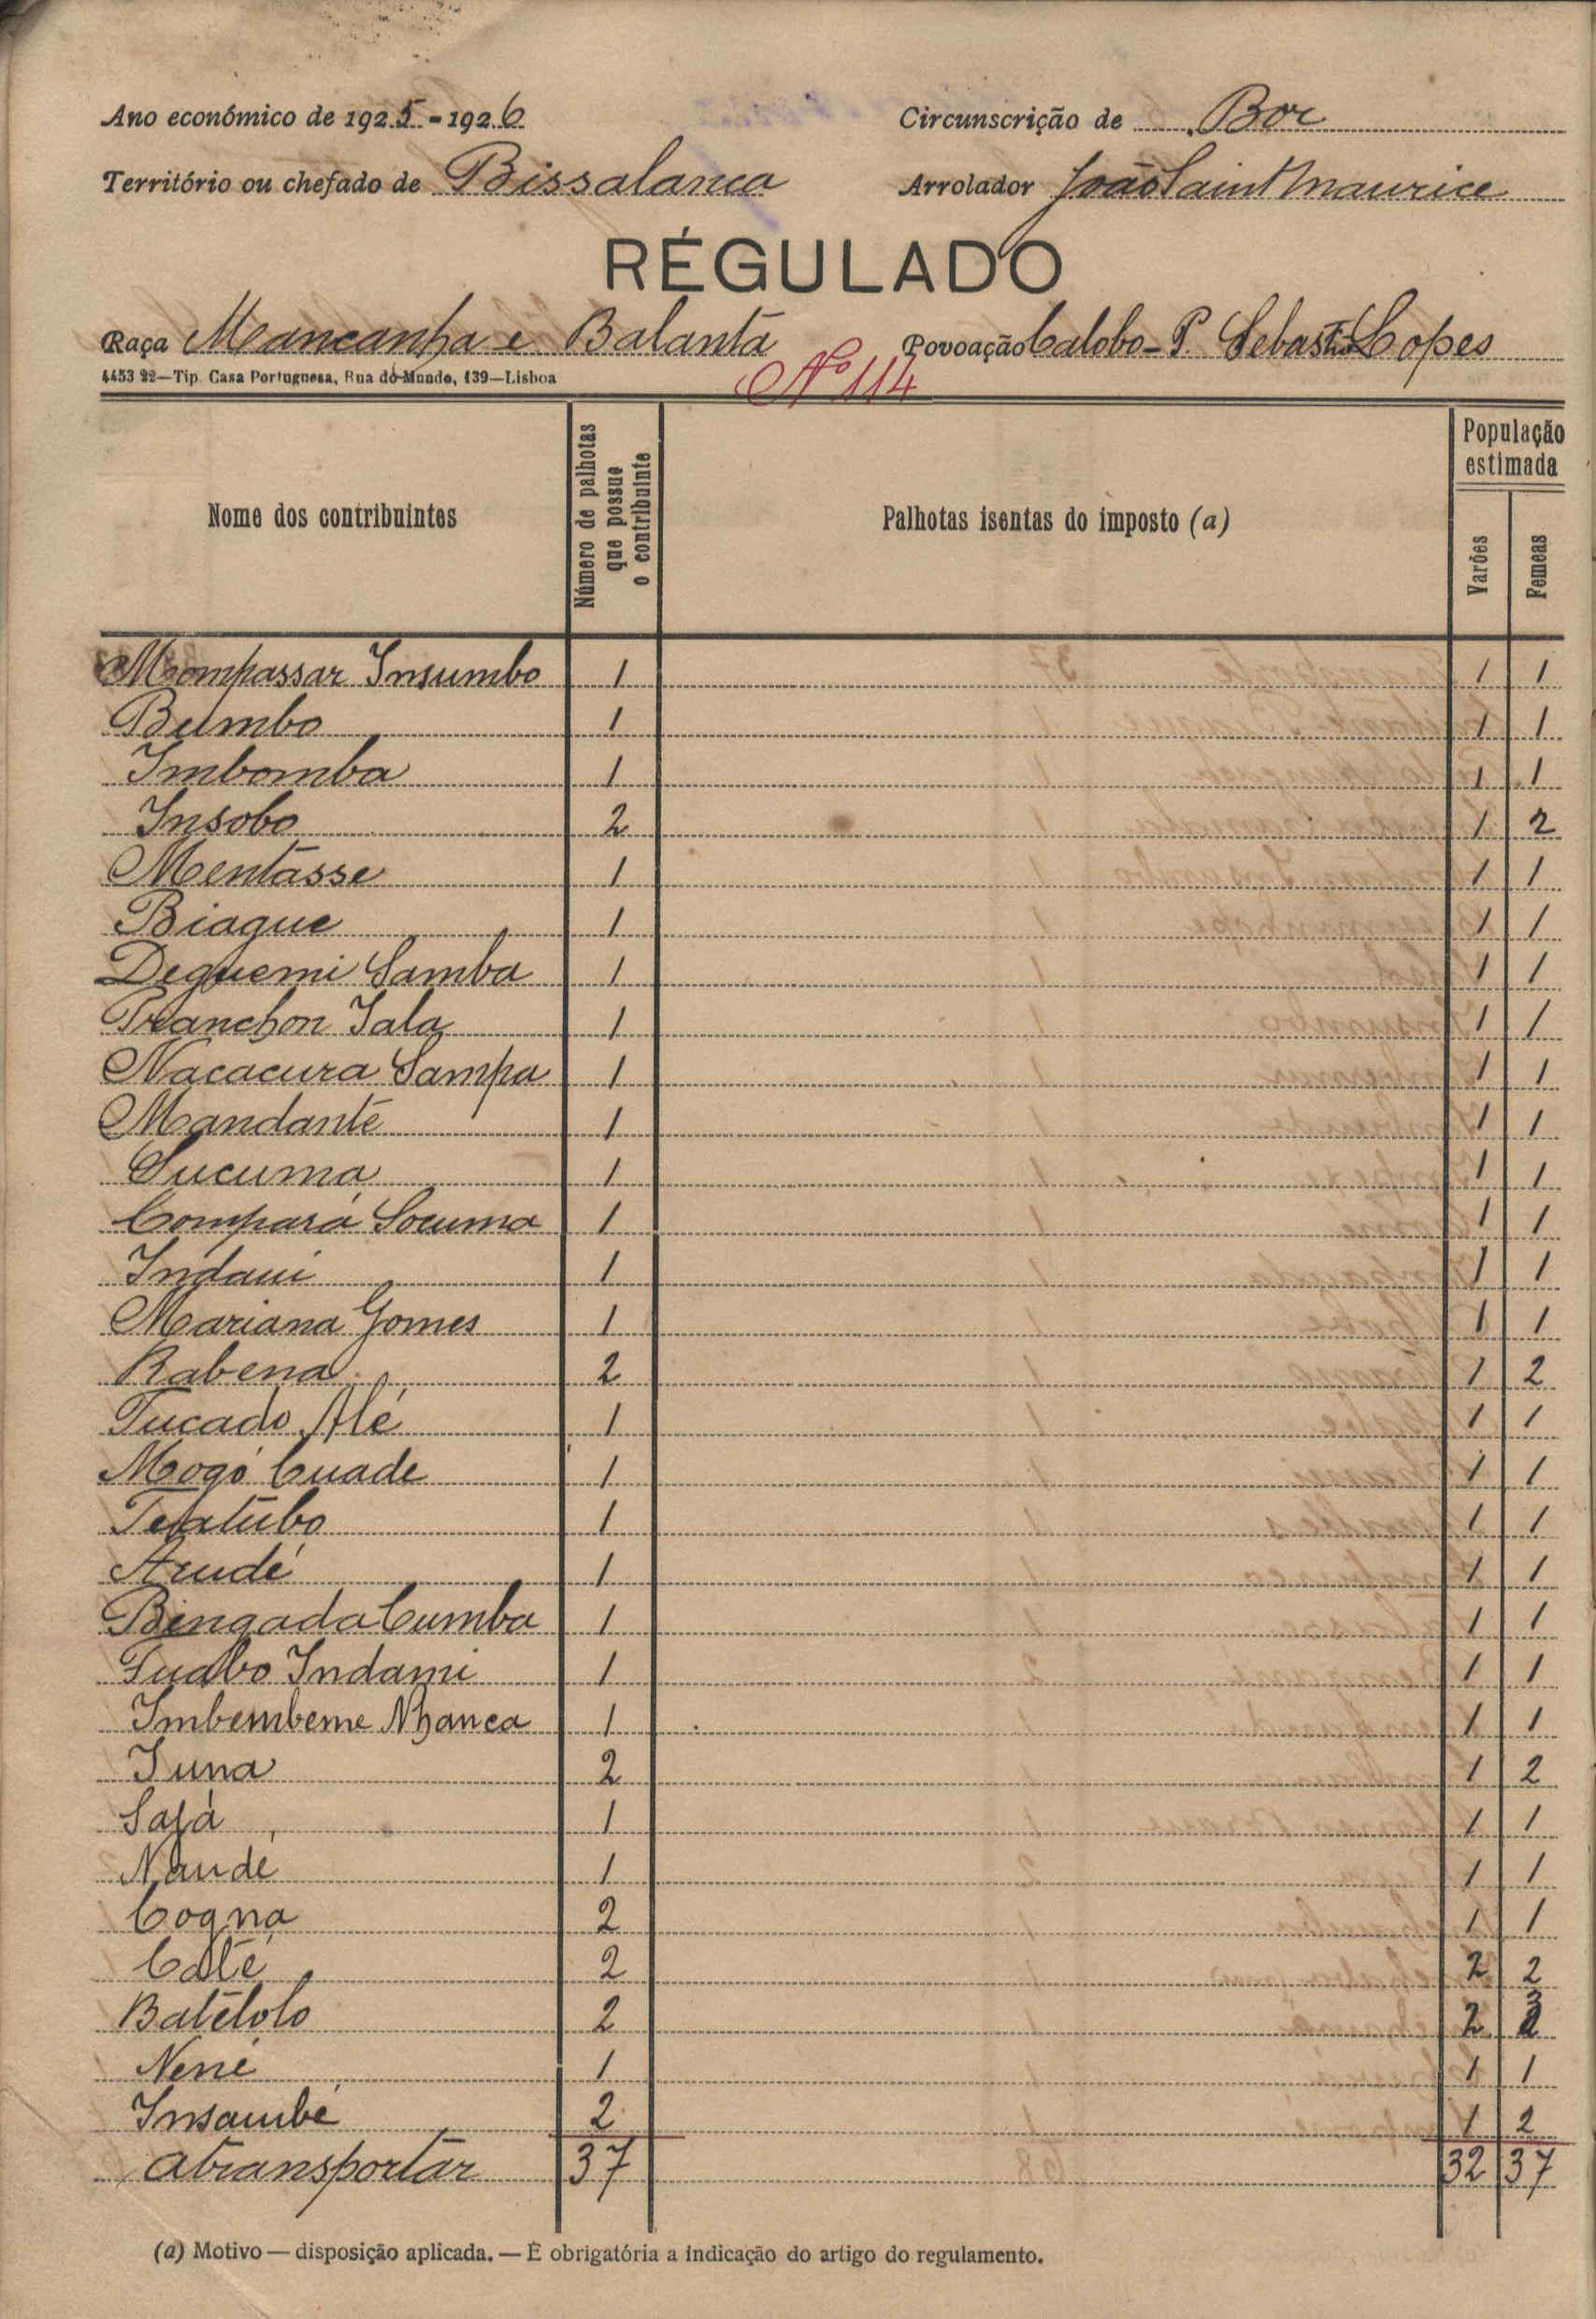 Ano económico de 1925-1926
Circunscrição de Bor
Território ou chefado de Bissalanca
Arrolador João Saint Maurice
RÉGULADO
Raça Mancanha e Balanta
Povoação Calobo - P. Sebastião Lopes
4453 22—Tip. Casa Portuguesa, Rua do Mundo, 139—Lisboa
Nº 114
Nome dos contribuintes
Número de palhotas que possue o contribuinte
Palhotas isentas do imposto (a)
População estimada
Varões
Femeas
Mompassar Insumbo 1 1 1
Bumbo 1 1 1
Imbomba 1 1 1
Insobo 2 1 2
Mentasse 1 1 1
Biague 1 1 1
Deguemi Samba 1 1 1
Tranchon Iala 1 1 1
Nacacura Sampa 1 1 1
Mandante 1 1 1
Sucuma 1 1 1
Compará Socuma 1 1 1
Indaui 1 1 1
Mariana Gomes 1 1 1
Rabena 2 1 2
Tucado Alé 1 1 1
Mogó Cuade 1 1 1
1 1 1
Arudé 1 1 1
Bingada Cumba 1 1 1
Tuabo Indami 1 1 1
Imbembeme Nhanca 1 1 1
Iuna 2 1 2
Safá 1 1 1
Naudé 1 1 1
Cogna 2 1 1
Calé 2 2 2
Batélolo 2 2 3
Nené 1 1 1
Insambé 2 1 2
A transportar 37 32 37
(a) Motivo — disposição aplicada. — É obrigatória a indicação do artigo do regulamento.